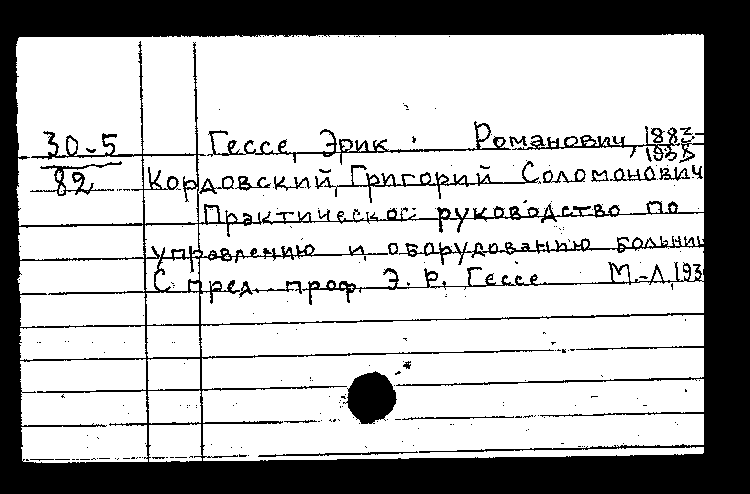 30-5
82
Гессе, Эрик Романович, 1883-
1938
Кордовский, Григорий Соломонович
Практическое руководство по
управлению и оборудованию больниц
С пред. проф. Э. Р. Гессе. М.-Л., 193